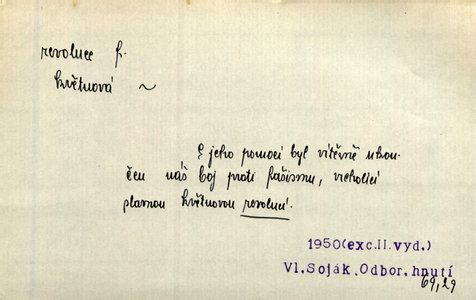 revoluce f.
květnová ~
S jeho pomocí byl vítězně ukon-
čen náš boj proti fašismu, vrcholící
slavnou květnovou revolucí.
1950(exc.II.vyd.)
Vl.Soják,Odbor.hnutí
69,29